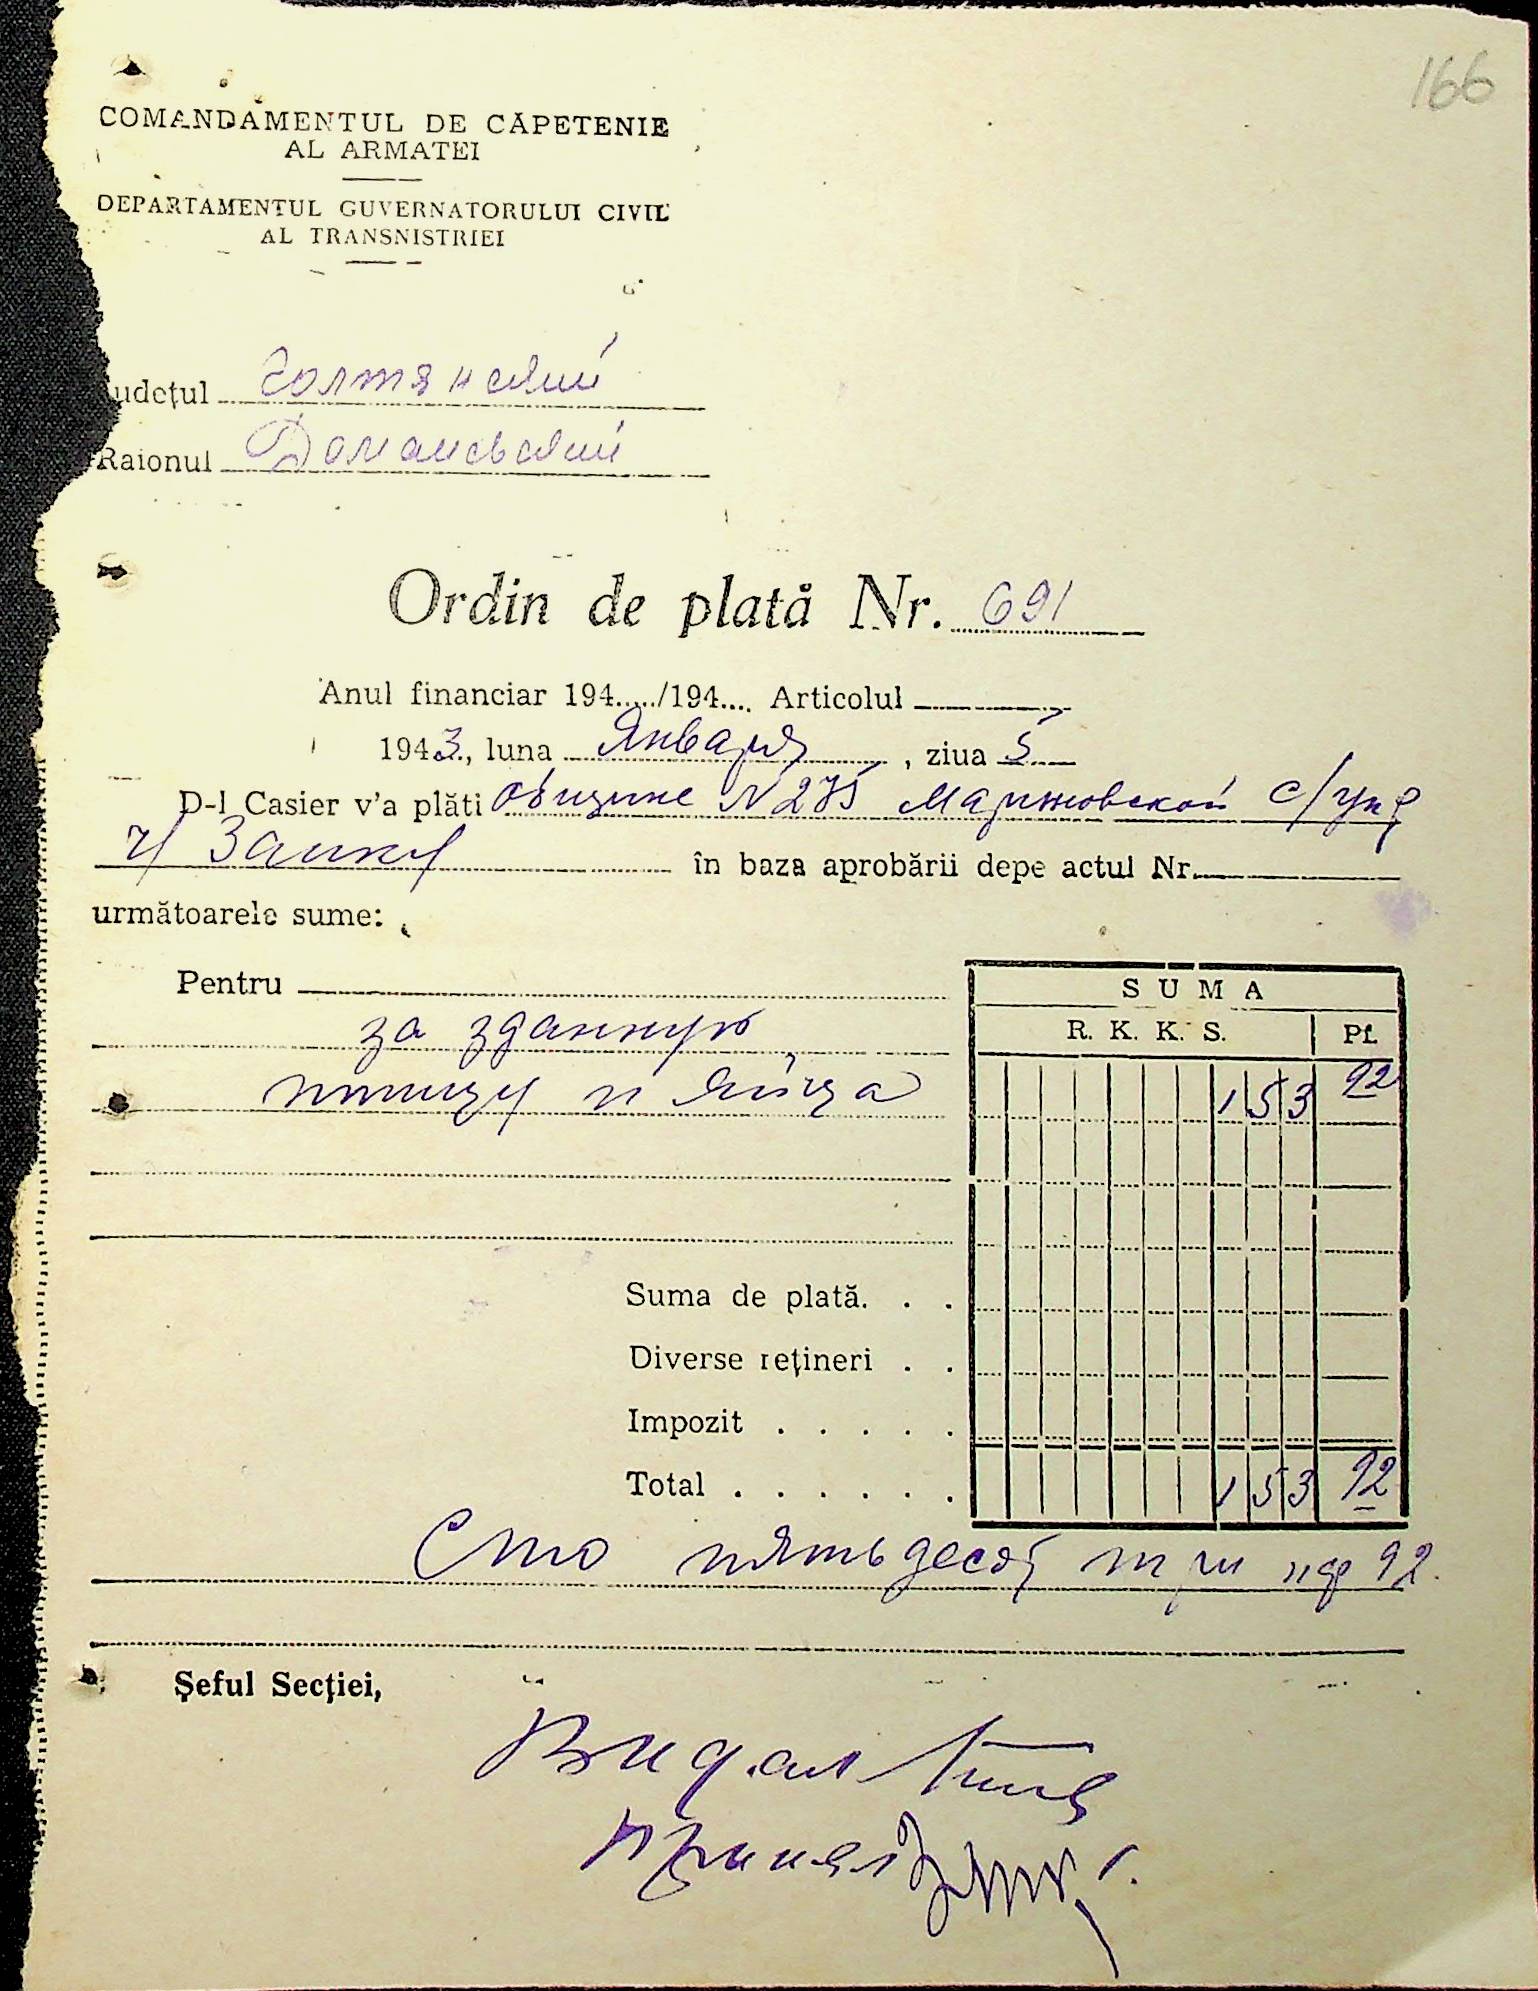 166
COMANDAMENTUL DE CAPETENIE
AL ARMATEI
DEPARTAMENTUL GUVERNATORULUI CIVIL
AL TRANSNISTRIEI
udeţul Голтянский
Raionul Доманевский
Ordin de plată Nr. 691
Anul financiar 194...../194.... Articolul
1943., luna Января, ziua 5
D-l Casier v'a plăti общине N 275 Мариновской с/упр
ч/ Заику în baza aprobării depe actul Nr.
următoarele sume:
Pentru
за зданную
птицу и яйца
SUMA
R. K. K. S. Pf.
153 92
Suma de plată. . .
Diverse reţineri . .
Impozit . . . . .
Total . . . . . . 153 92
Сто пятьдесят три 92.
Şeful Secţiei,
Видал
Принял